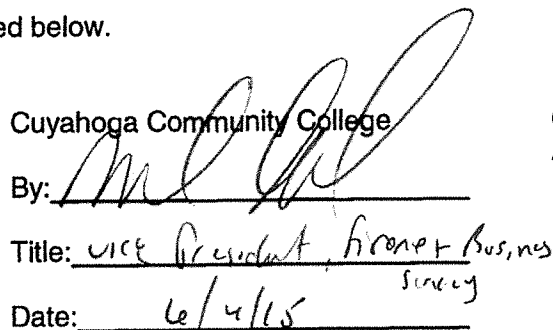 ed below.
Cuyahoga Community College
By:
Title: Vice President, Finance + Business
Date: 6/4/15